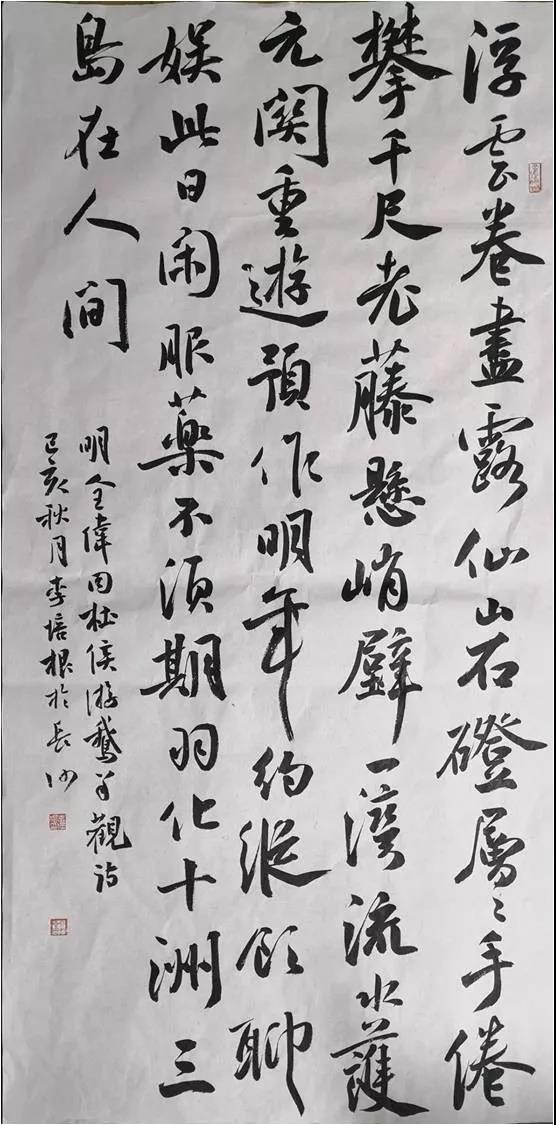 浮雲卷盡露仙山石磴層〻手倦
攀千尺老藤懸峭壁一溪流水護
元関重遊預作明年約縱飲聊
娱此日闲服藥不須期羽化十洲三
島在人间
明全偉因杜侯游鵞羊觀诗
己亥秋月李培根於長沙